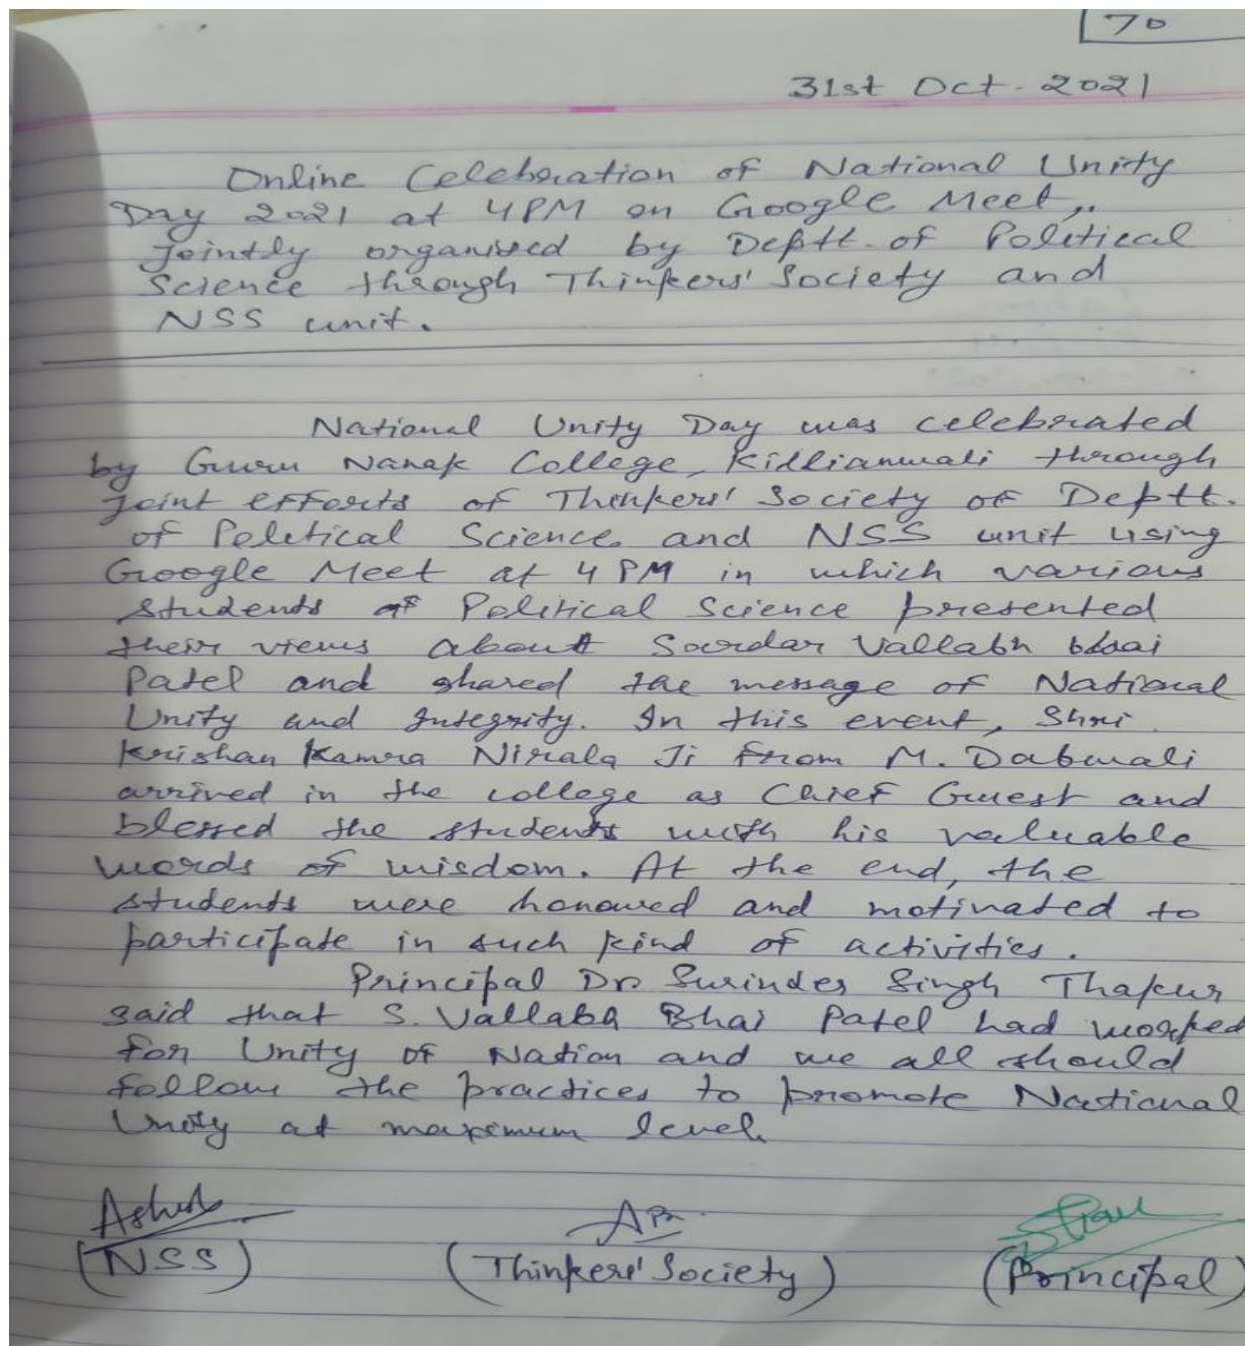 70
31st Oct - 2021
Online Celebration of National Unity
Day 2021 at 4PM on Google Meet,
Jointly organised by Deptt. of Political
Science through Thinkers' Society and
NSS unit.
National Unity Day was celebrated
by Guru Nanak College, Killianwali through
joint efforts of Thinkers' Society of Deptt.
of Political Science and NSS unit using
Google Meet at 4 PM in which various
students of Political Science presented
their views about Sardar Vallabh bhai
Patel and shared the message of National
Unity and Integrity. In this event, Shri
Krishan Kamra Nirala Ji from M. Dabwali
arrived in the college as Chief Guest and
blessed the students with his valuable
words of wisdom. At the end, the
students were honoured and motivated to
participate in such kind of activities.
Principal Dr Surinder Singh Thakur
said that S. Vallabh Bhai Patel had worked
for Unity of Nation and we all should
follow the practices to promote National
Unity at maximum level.
(NSS) (Thinkers' Society) (Principal)